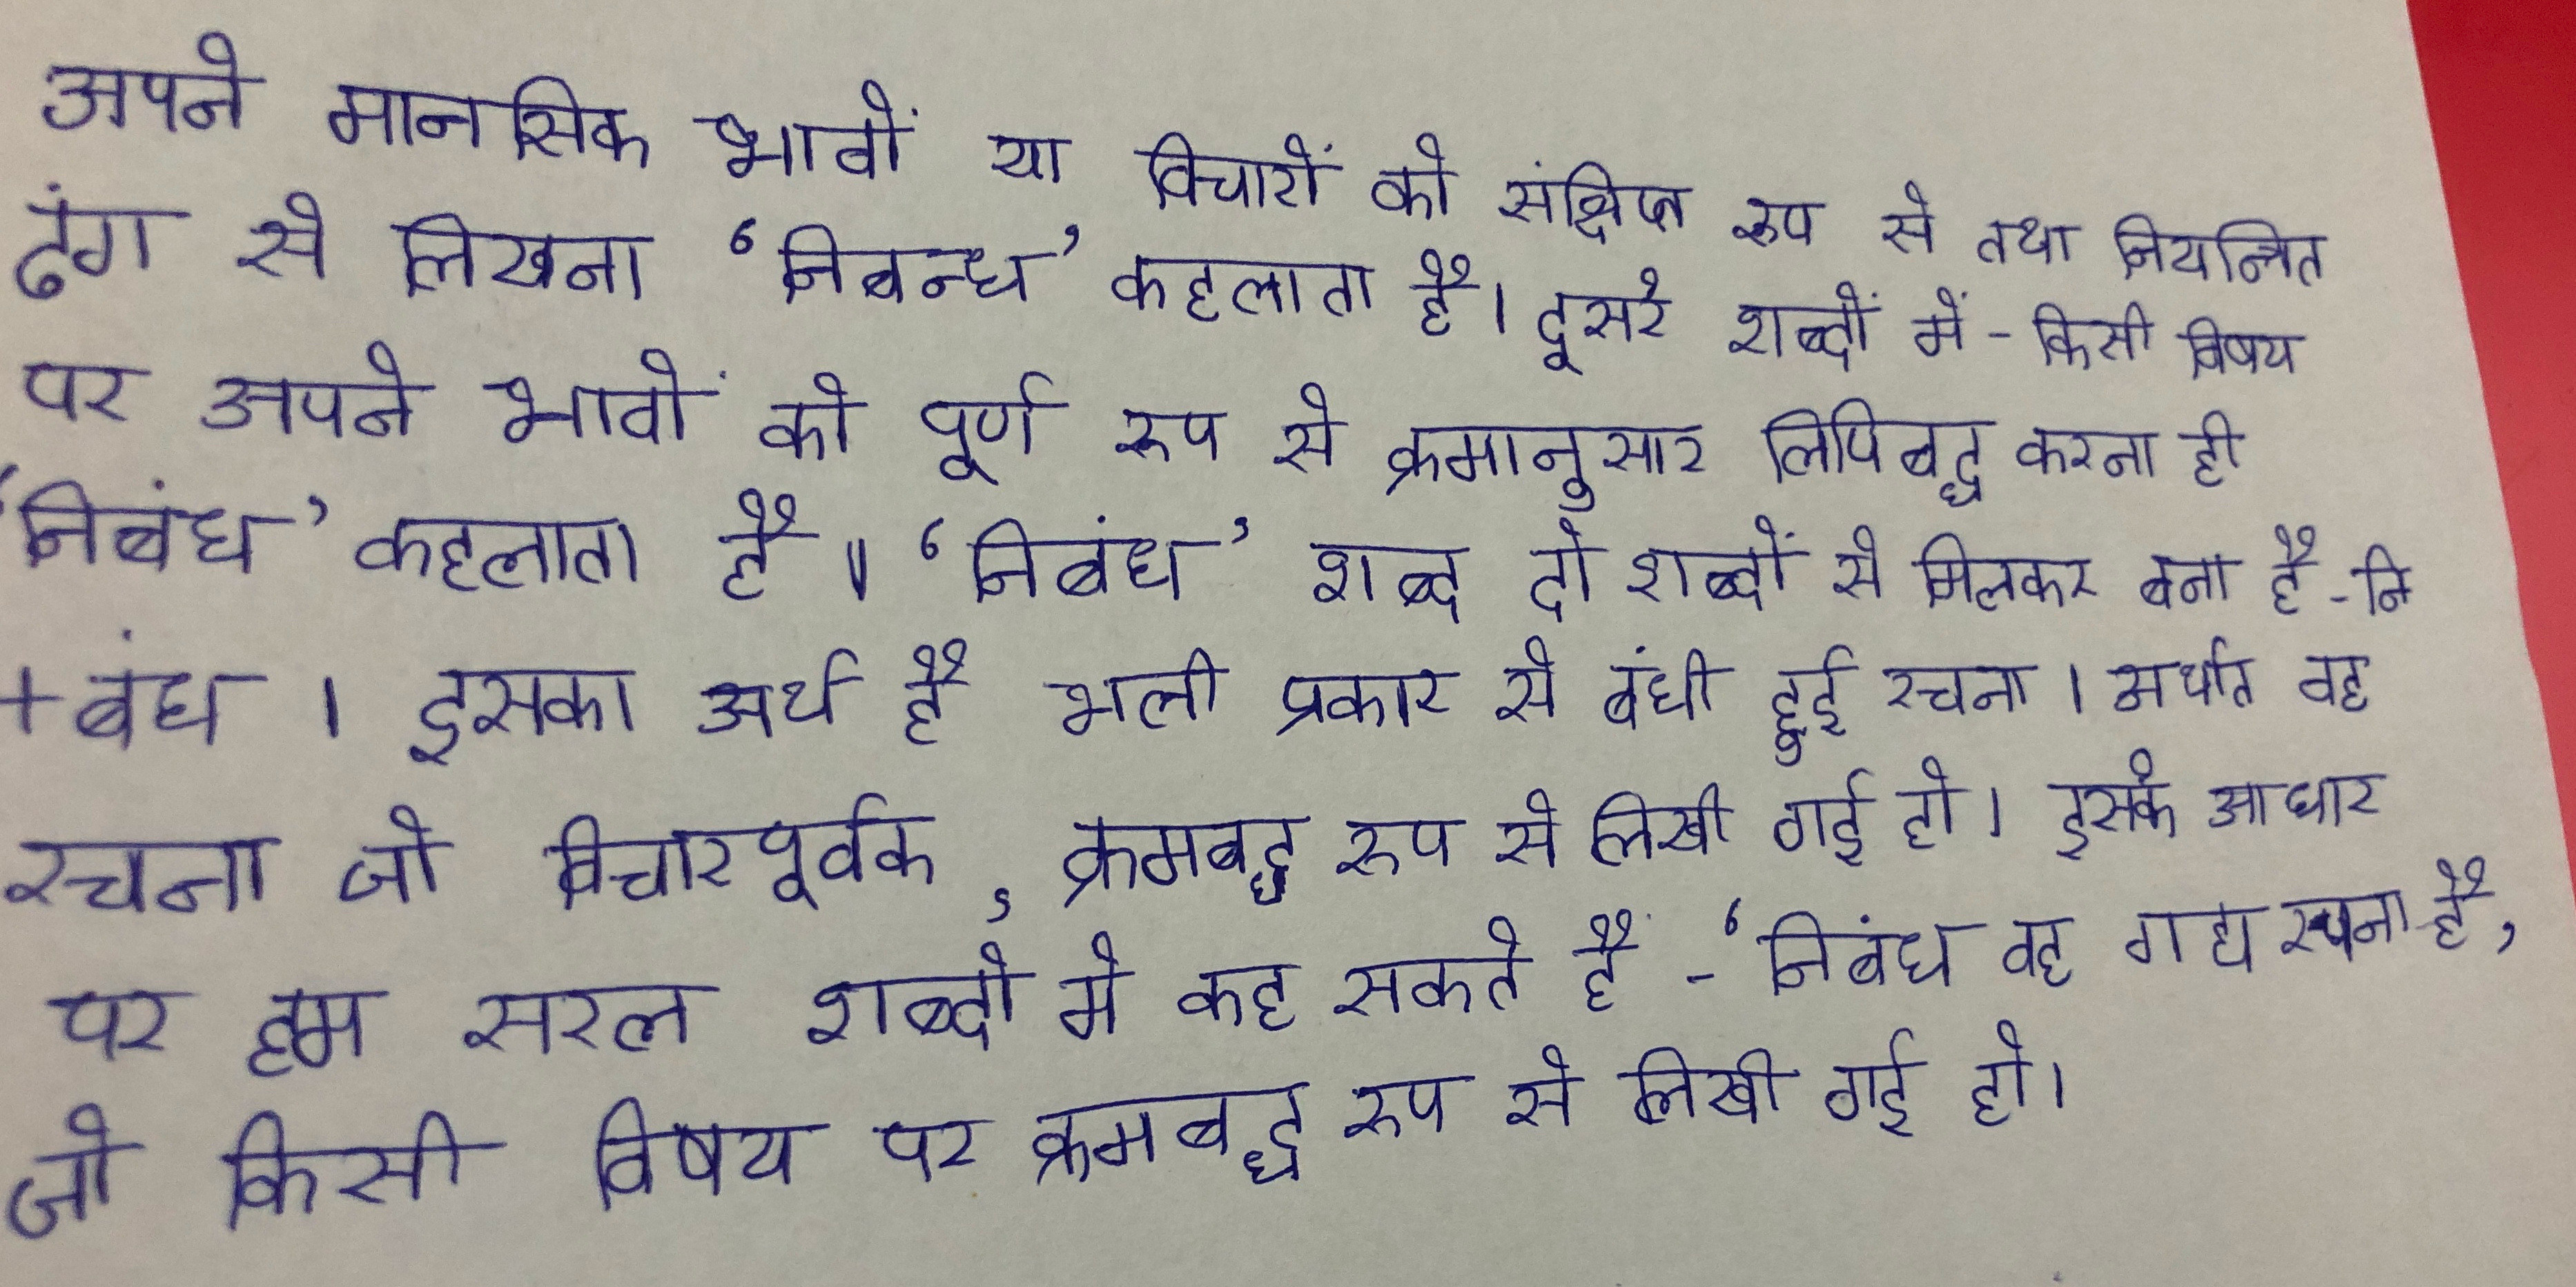 अपने मानसिक भावों या विचारों को संक्षिप्त रुप से तथा नियन्त्रित
ढंग से लिखना ‘निबन्ध’ कहलाता है। दूसरे शब्दों में - किसी विषय
पर अपने भावों को पूर्ण रुप से क्रमानुसार लिपिबद्ध करना ही
‘निबंध’ कहलाता है॥ ‘निबंध’ शब्द दो शब्दों से मिलकर बना है - नि
+ बंध । इसका अर्थ है भली प्रकार से बंधी हुई रचना । अर्थात वह
रचना जो विचारपूर्वक , क्रमबद्ध रुप से लिखी गई हो। इसके आधार
पर हम सरल शब्दो मे कह सकते हैं - ‘निबंध वह गद्य रचना है,
जो किसी विषय पर क्रमबद्ध रुप से लिखी गई हो।